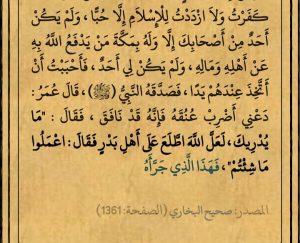 كَفَرْتُ وَلَا ازْدَدْتُ لِلْإِسْلَامِ إِلَّا حُبًّا، وَلَمْ يَكُنْ
أَحَدٌ مِنْ أَصْحَابِكَ إِلَّا وَلَهُ بِمَكَّةَ مَنْ يَدْفَعُ اللَّهُ بِهِ
عَنْ أَهْلِهِ وَمَالِهِ، وَلَمْ يَكُنْ لِي أَحَدٌ، فَأَحْبَبْتُ أَنْ
أَتَّخِذَ عِنْدَهُمْ يَدًا، فَصَدَّقَهُ النَّبِيُّ (ﷺ)، قَالَ عُمَرُ:
دَعْنِي أَضْرِبْ عُنُقَهُ فَإِنَّهُ قَدْ نَافَقَ، فَقَالَ: "مَا
يُدْرِيكَ، لَعَلَّ اللَّهَ اطَّلَعَ عَلَى أَهْلِ بَدْرٍ فَقَالَ: اعْمَلُوا
مَا شِئْتُمْ"، فَهَذَا الَّذِي جَرَّأَهُ
المصدر: صحيح البخاري (الصفحة: 1361)